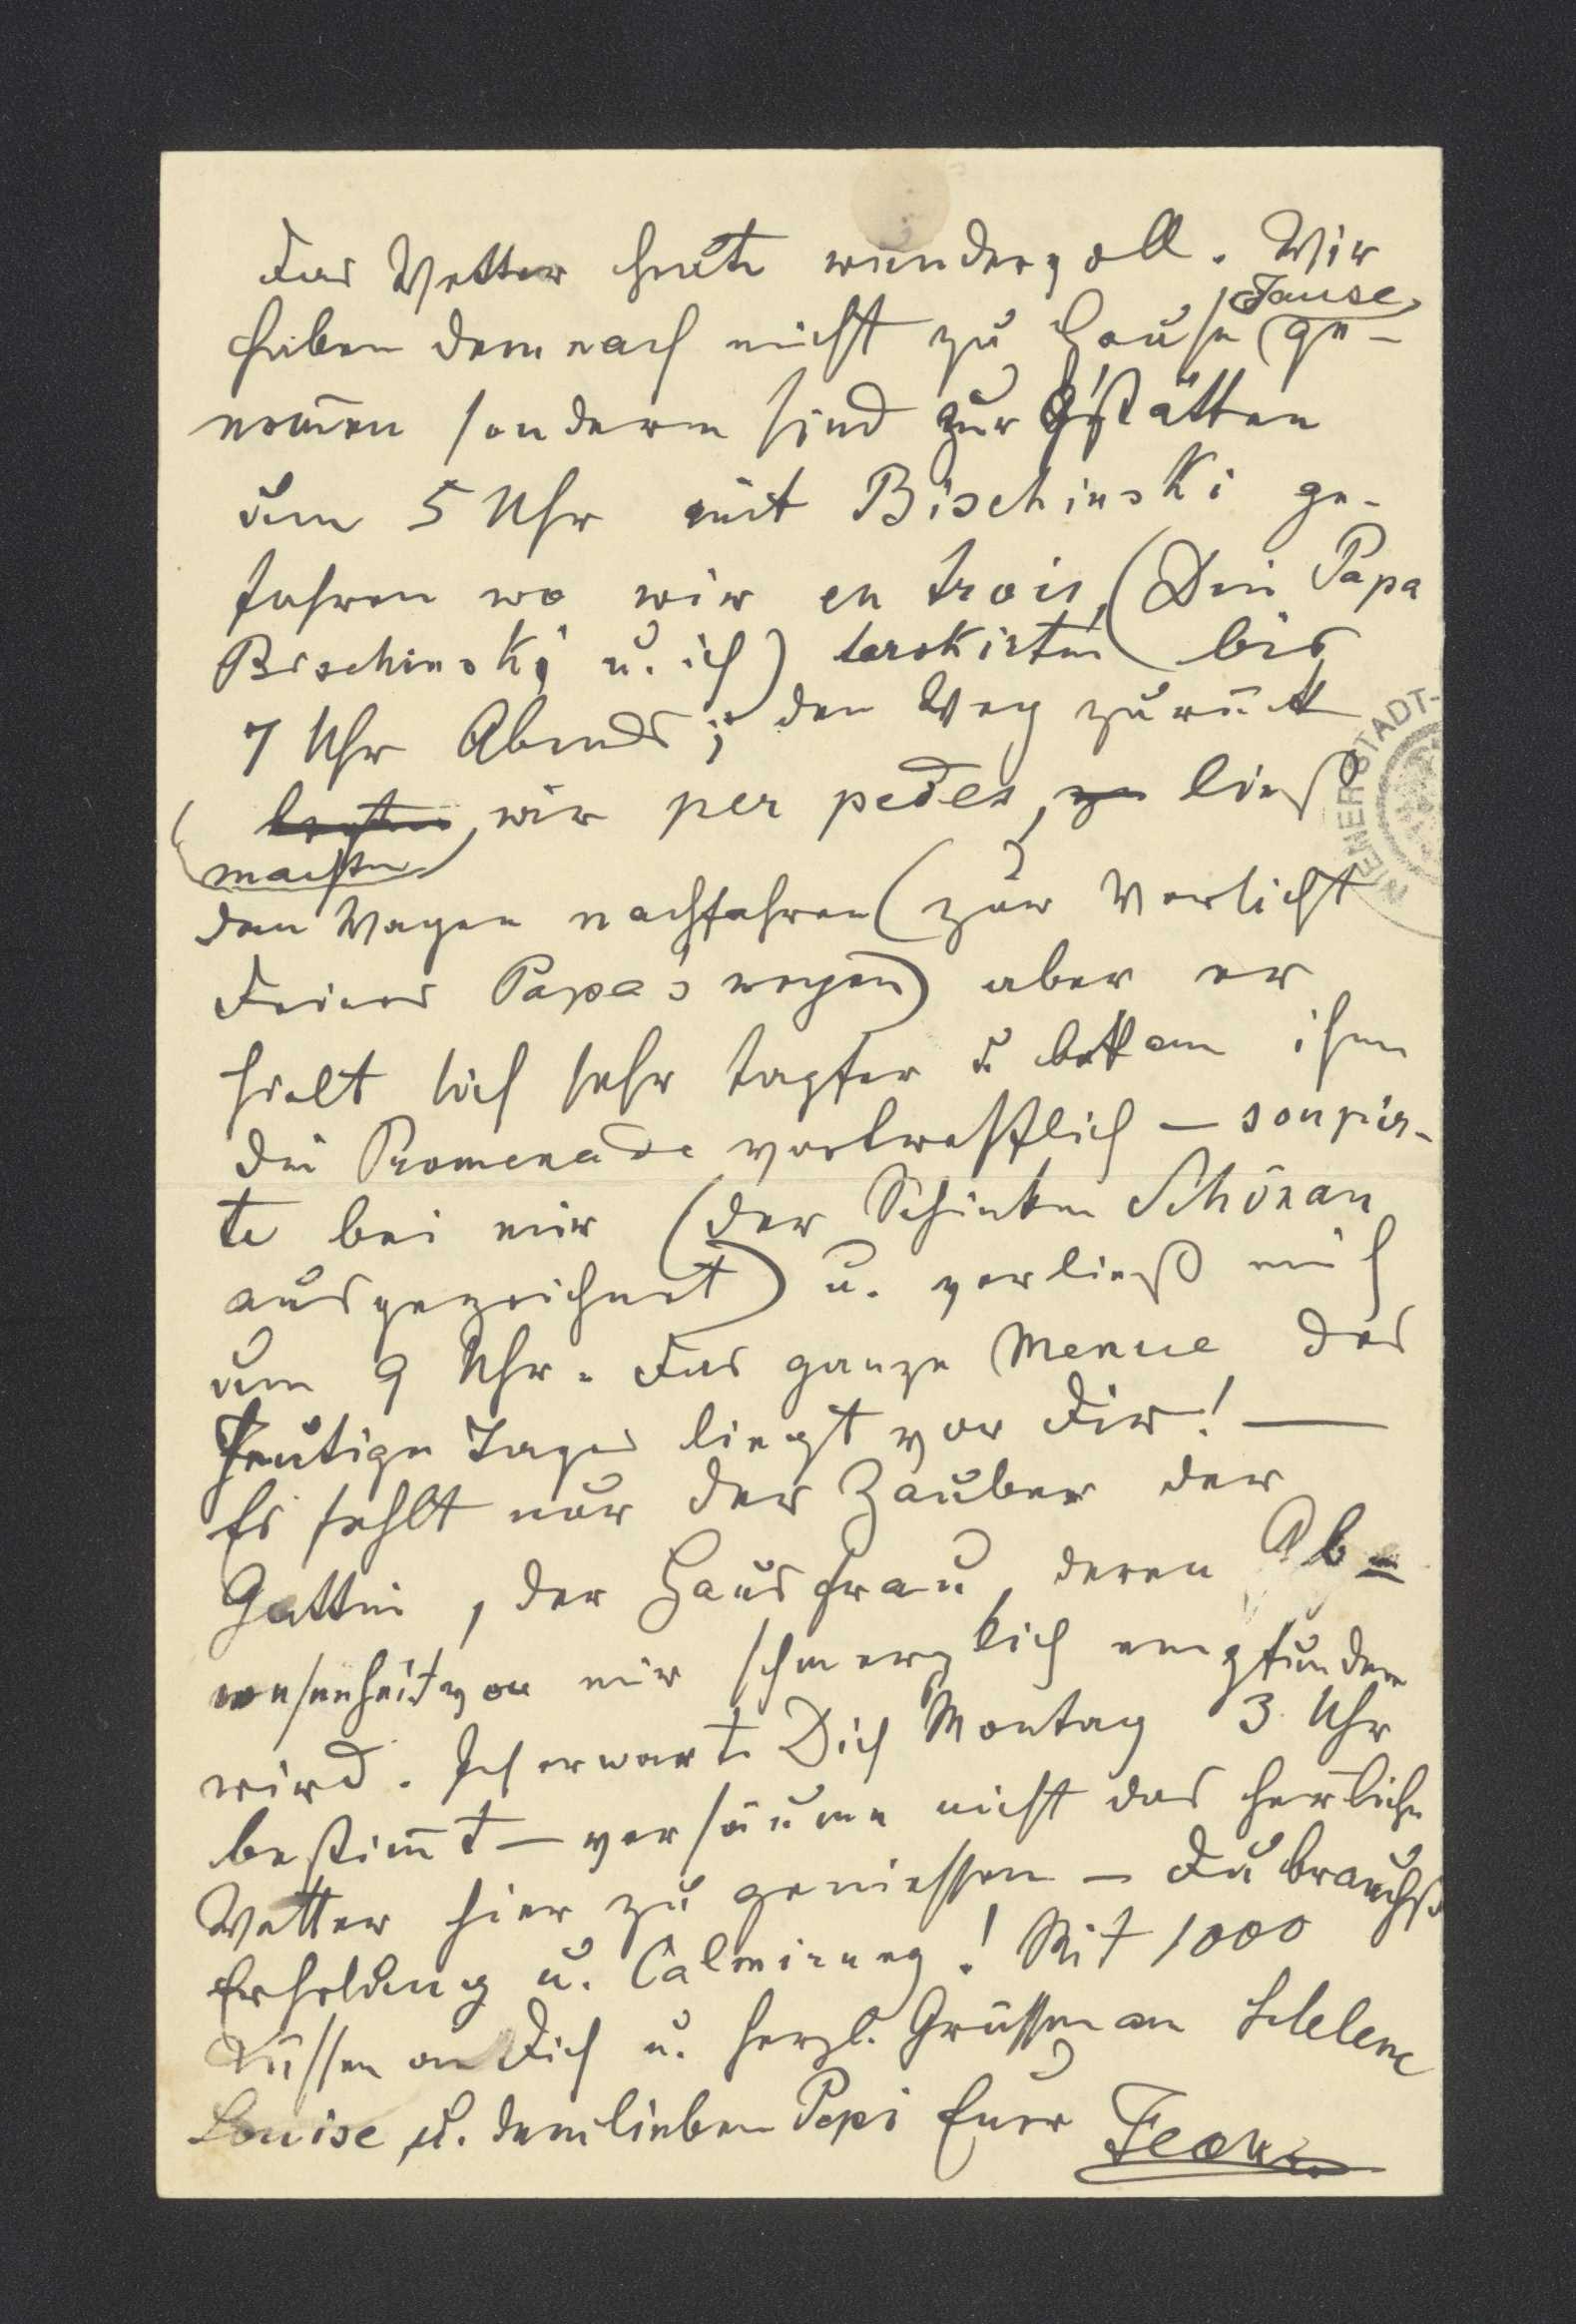 Das Wetter heute wundervoll. Wir
haben demnach nicht zu Hause Jause ge-
nom̄en sondern sind zur Gstätten
um 5 Uhr mit Bischinski ge-
fahren wo wir en trois, (Dein Papa
Bischinski u. ich) tarokirten bis
7 Uhr Abends; den Weg zurück
machten wir per pedes, ließ
den Wagen nachfahren (zur Vorsicht
Deines Papa's wegen) aber er
hielt sich sehr tapfer u bekam ihm
die Promenade vortrefflich – soupir-
te bei mir (der Schinken Schönau
ausgezeichnet) u. verließ mich
um 9 Uhr. Das ganze Menue des
heutigen Tages liegt vor Dir! —
Es fehlt nur der Zauber der
Gattin, der Hausfrau, deren Ab-
wesenheit von mir schmerzlich empfunden
wird. Ich erwarte Dich Montag 3 Uhr
bestim̄t – versäume nicht das herrliche
Wetter hier zu geniessen – Du brauchst
Erholung u. Calmirung! Mit 1000
Küssen an Dich u. herzl. Grüssen an Helene
Louise u. dem lieben Pepi Euer Franz
WIENER STADT-